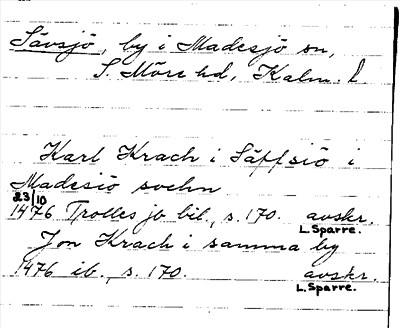 Sävsjö, by i Madesjö sn,
S. Möre hd, Kalm. l
Karl Krach i Säffsiö i
Madesiö sochn
23/10
1476 Trolles jb bil., s. 170. avskr.
L. Sparre.
Jon Krach i samma by
1476 ib., s. 170. avskr.
L. Sparre.